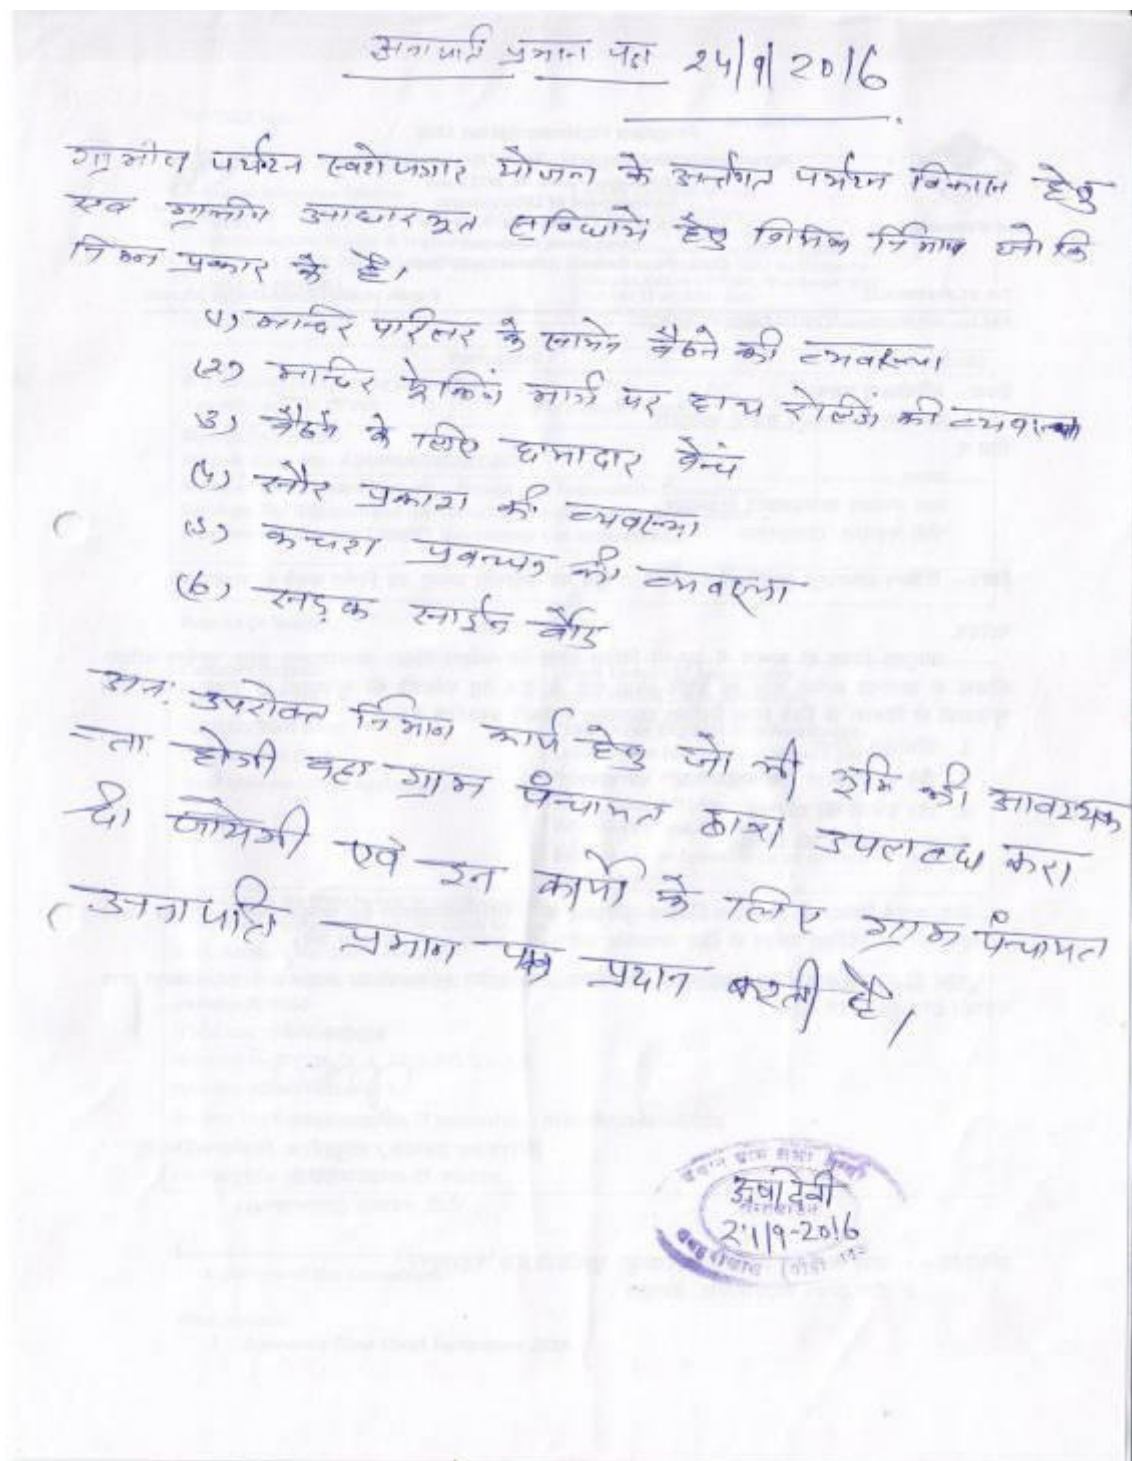 अनापत्ति प्रमाण पत्र 24/9/2016
ग्रामीण पर्यटन स्वरोजगार योजना के अर्न्तगत पर्यटन विकास हेतु
एवं ग्रामीण आधारभूत सुविधाये हेतु निर्माण जो कि
निम्न प्रकार के है।
(1) मन्दिर परिसर के सामने बैठने की व्यवस्था
(2) मन्दिर ट्रैकिंग मार्ग पर हाथ रेलिंग की व्यवस्था
(3) बैठने के लिए छायादार बैन्च
(4) सौर प्रकाश की व्यवस्था
(5) कचरा प्रबन्धन की व्यवस्था
(6) सड़क साईन बोर्ड
अतः उपरोक्त निर्माण कार्य हेतु जो भी भूमि की आवश्यक
ता होगी वहा ग्राम पंचायत द्वारा उपलब्ध करा
दी जायेगी एवं इन कार्यो के लिए ग्राम पंचायत
अनापत्ति प्रमाण पत्र प्रदान करती है।
प्रधान ग्राम सभा
ऊषा देवी
24/9-2016